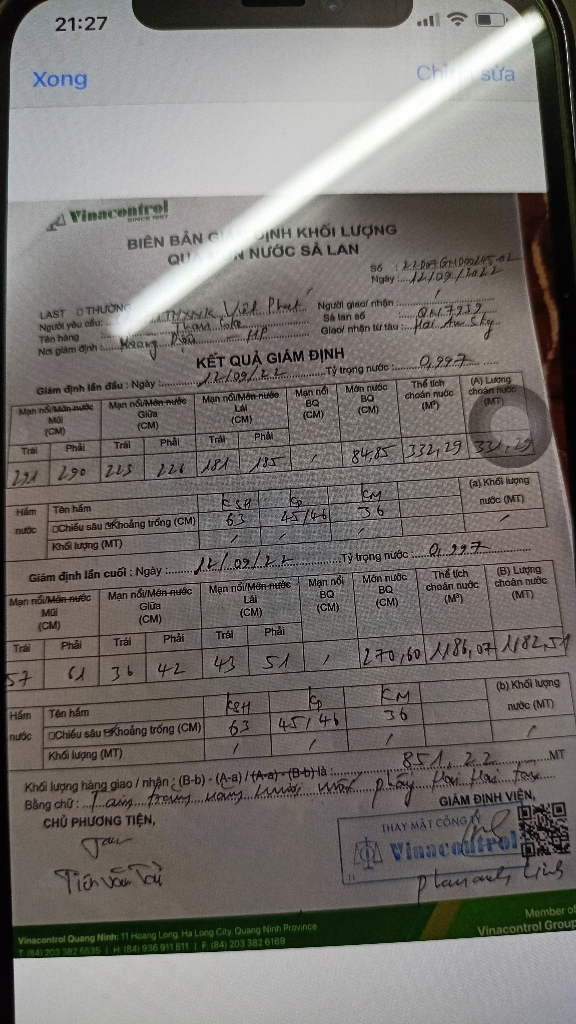 21:27
Xong
Vinacontrol
SINCE 1957
BIÊN BẢN GIÁM ĐỊNH KHỐI LƯỢNG
QUA MỚN NƯỚC SÀ LAN
Số :
Ngày : 12/09/2022
LAST THƯỜNG
Người yêu cầu: Việt Phát Người giao/ nhận : /
Tên hàng Than Coke Sà lan số QN7939
Nơi giám định : Giao/ nhận từ tàu : Hai An Sky
KẾT QUẢ GIÁM ĐỊNH
Giám định lần đầu : Ngày : 12/09/22 Tỷ trọng nước : 0,997
Mạn nổi/Mớn nước Mũi (CM) Mạn nổi/Mớn nước Giữa (CM) Mạn nổi/Mớn nước Lái (CM) Mạn nổi BQ (CM) Mớn nước BQ (CM) Thể tích choán nước (M³) (A) Lượng choán nước (MT)
Trái Phải Trái Phải Trái Phải
291 290 223 226 181 185 / 84,85 332,29 331,29
Hầm nước Tên hầm KSH KP KM (a) Khối lượng nước (MT)
Chiều sâu Khoảng trống (CM) 63 45/46 36 /
Khối lượng (MT) / / /
Giám định lần cuối : Ngày : 12/09/22 Tỷ trọng nước : 0,997
Mạn nổi/Mớn nước Mũi (CM) Mạn nổi/Mớn nước Giữa (CM) Mạn nổi/Mớn nước Lái (CM) Mạn nổi BQ (CM) Mớn nước BQ (CM) Thể tích choán nước (M³) (B) Lượng choán nước (MT)
Trái Phải Trái Phải Trái Phải
57 61 36 42 43 51 / 270,60 1186,07 1182,51
Hầm nước Tên hầm KSH KP KM (b) Khối lượng nước (MT)
Chiều sâu Khoảng trống (CM) 63 45/46 36 /
Khối lượng (MT) / / /
Khối lượng hàng giao / nhận : (B-b) - (A-a) / (A-a) - (B-b) là : 851,22 MT
Bằng chữ : Tám trăm năm mươi mốt phẩy Hai Hai Tấn
CHỦ PHƯƠNG TIỆN, GIÁM ĐỊNH VIÊN,
THAY MẶT CÔNG TY
Vinacontrol
Vinacontrol Quang Ninh: 11 Hoang Long, Ha Long City, Quang Ninh Province
T: (84) 203 382 5535 | H: (84) 936 911 811 | F: (84) 203 382 6169
Member of
Vinacontrol Group